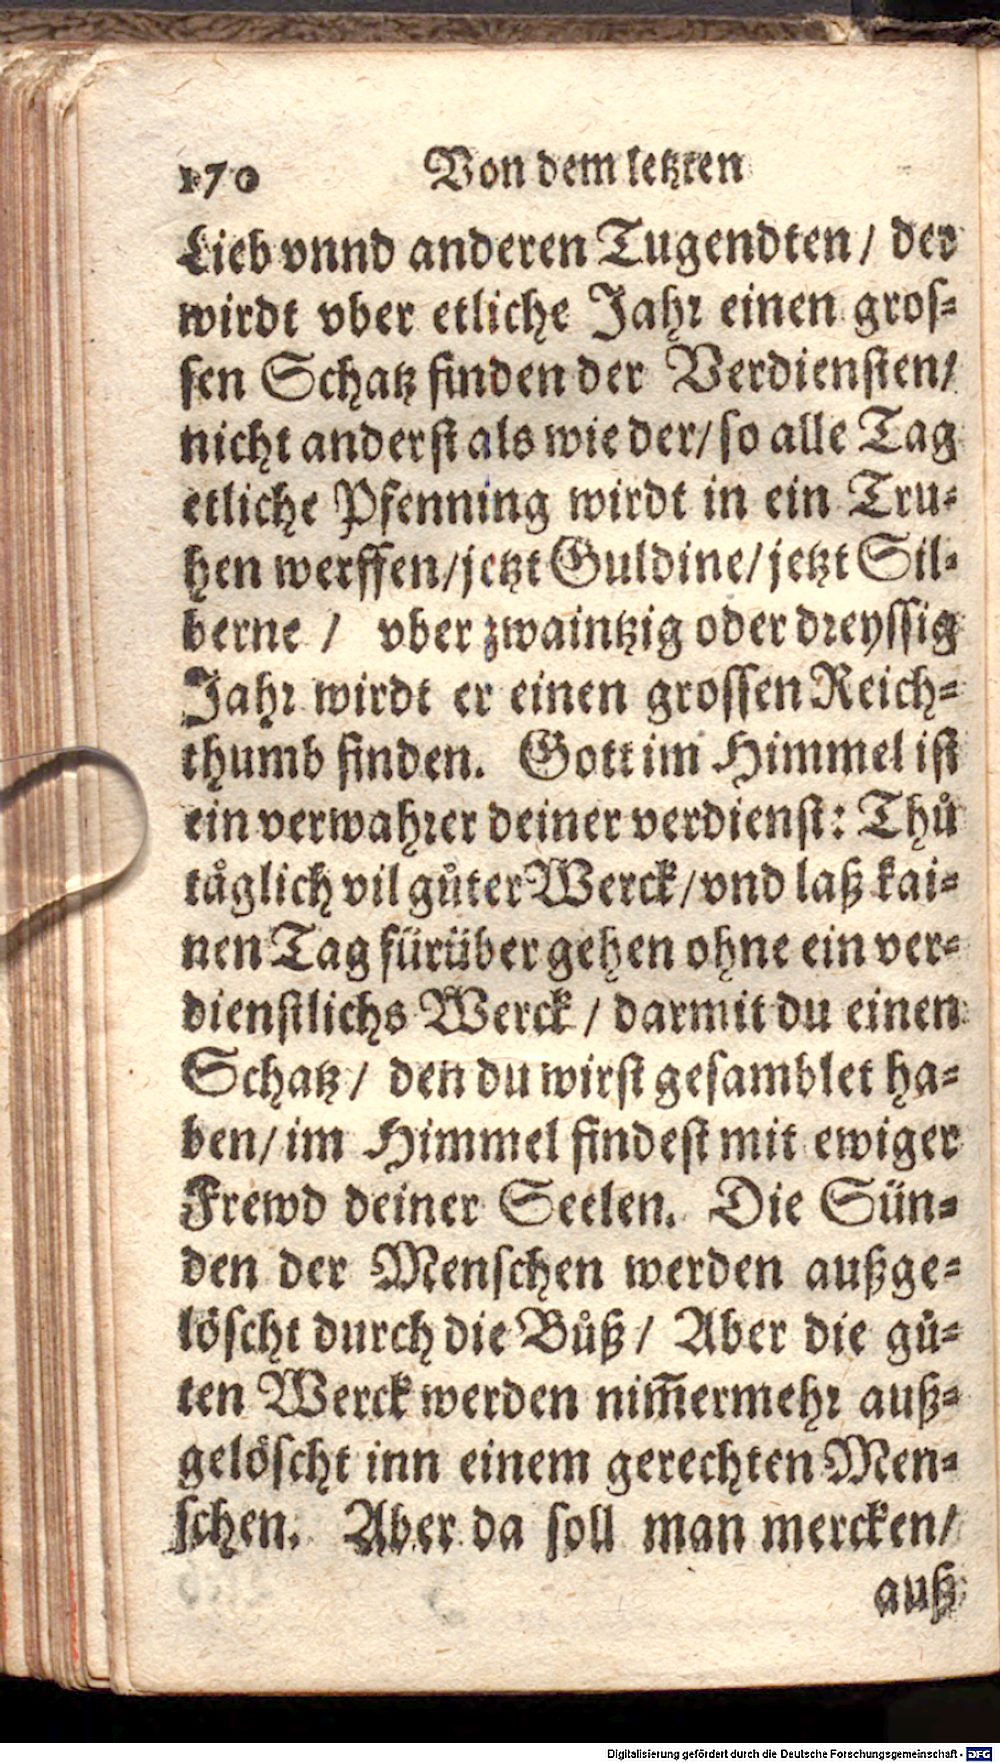 170 Von dem letzten
Lieb vnnd anderen Tugendten / der
wirdt vber etliche Jahr einen gros-
sen Schatz finden der Verdiensten /
nicht anderst als wie der / so alle Tag
etliche Pfenning wirdt in ein Tru-
hen werffen / jetzt Guldine / jetzt Sil-
berne / vber zwaintzig oder dreyssig
Jahr wirdt er einen grossen Reich-
thumb finden. Gott im Himmel ist
ein verwahrer deiner verdienst: Thů
tåglich vil gůter Werck / vnd laß kai-
nen Tag fürüber gehen ohne ein ver-
dienstlichs Werck / darmit du einen
Schatz / den du wirst gesamblet ha-
ben / im Himmel findest mit ewiger
Frewd deiner Seelen. Die Sün-
den der Menschen werden außge-
löscht durch die Bůß / Aber die gů-
ten Werck werden nim̄ermehr auß-
gelöscht inn einem gerechten Men-
schen. Aber da soll man mercken /
auß
Digitalisierung gefördert durch die Deutsche Forschungsgemeinschaft - DFG